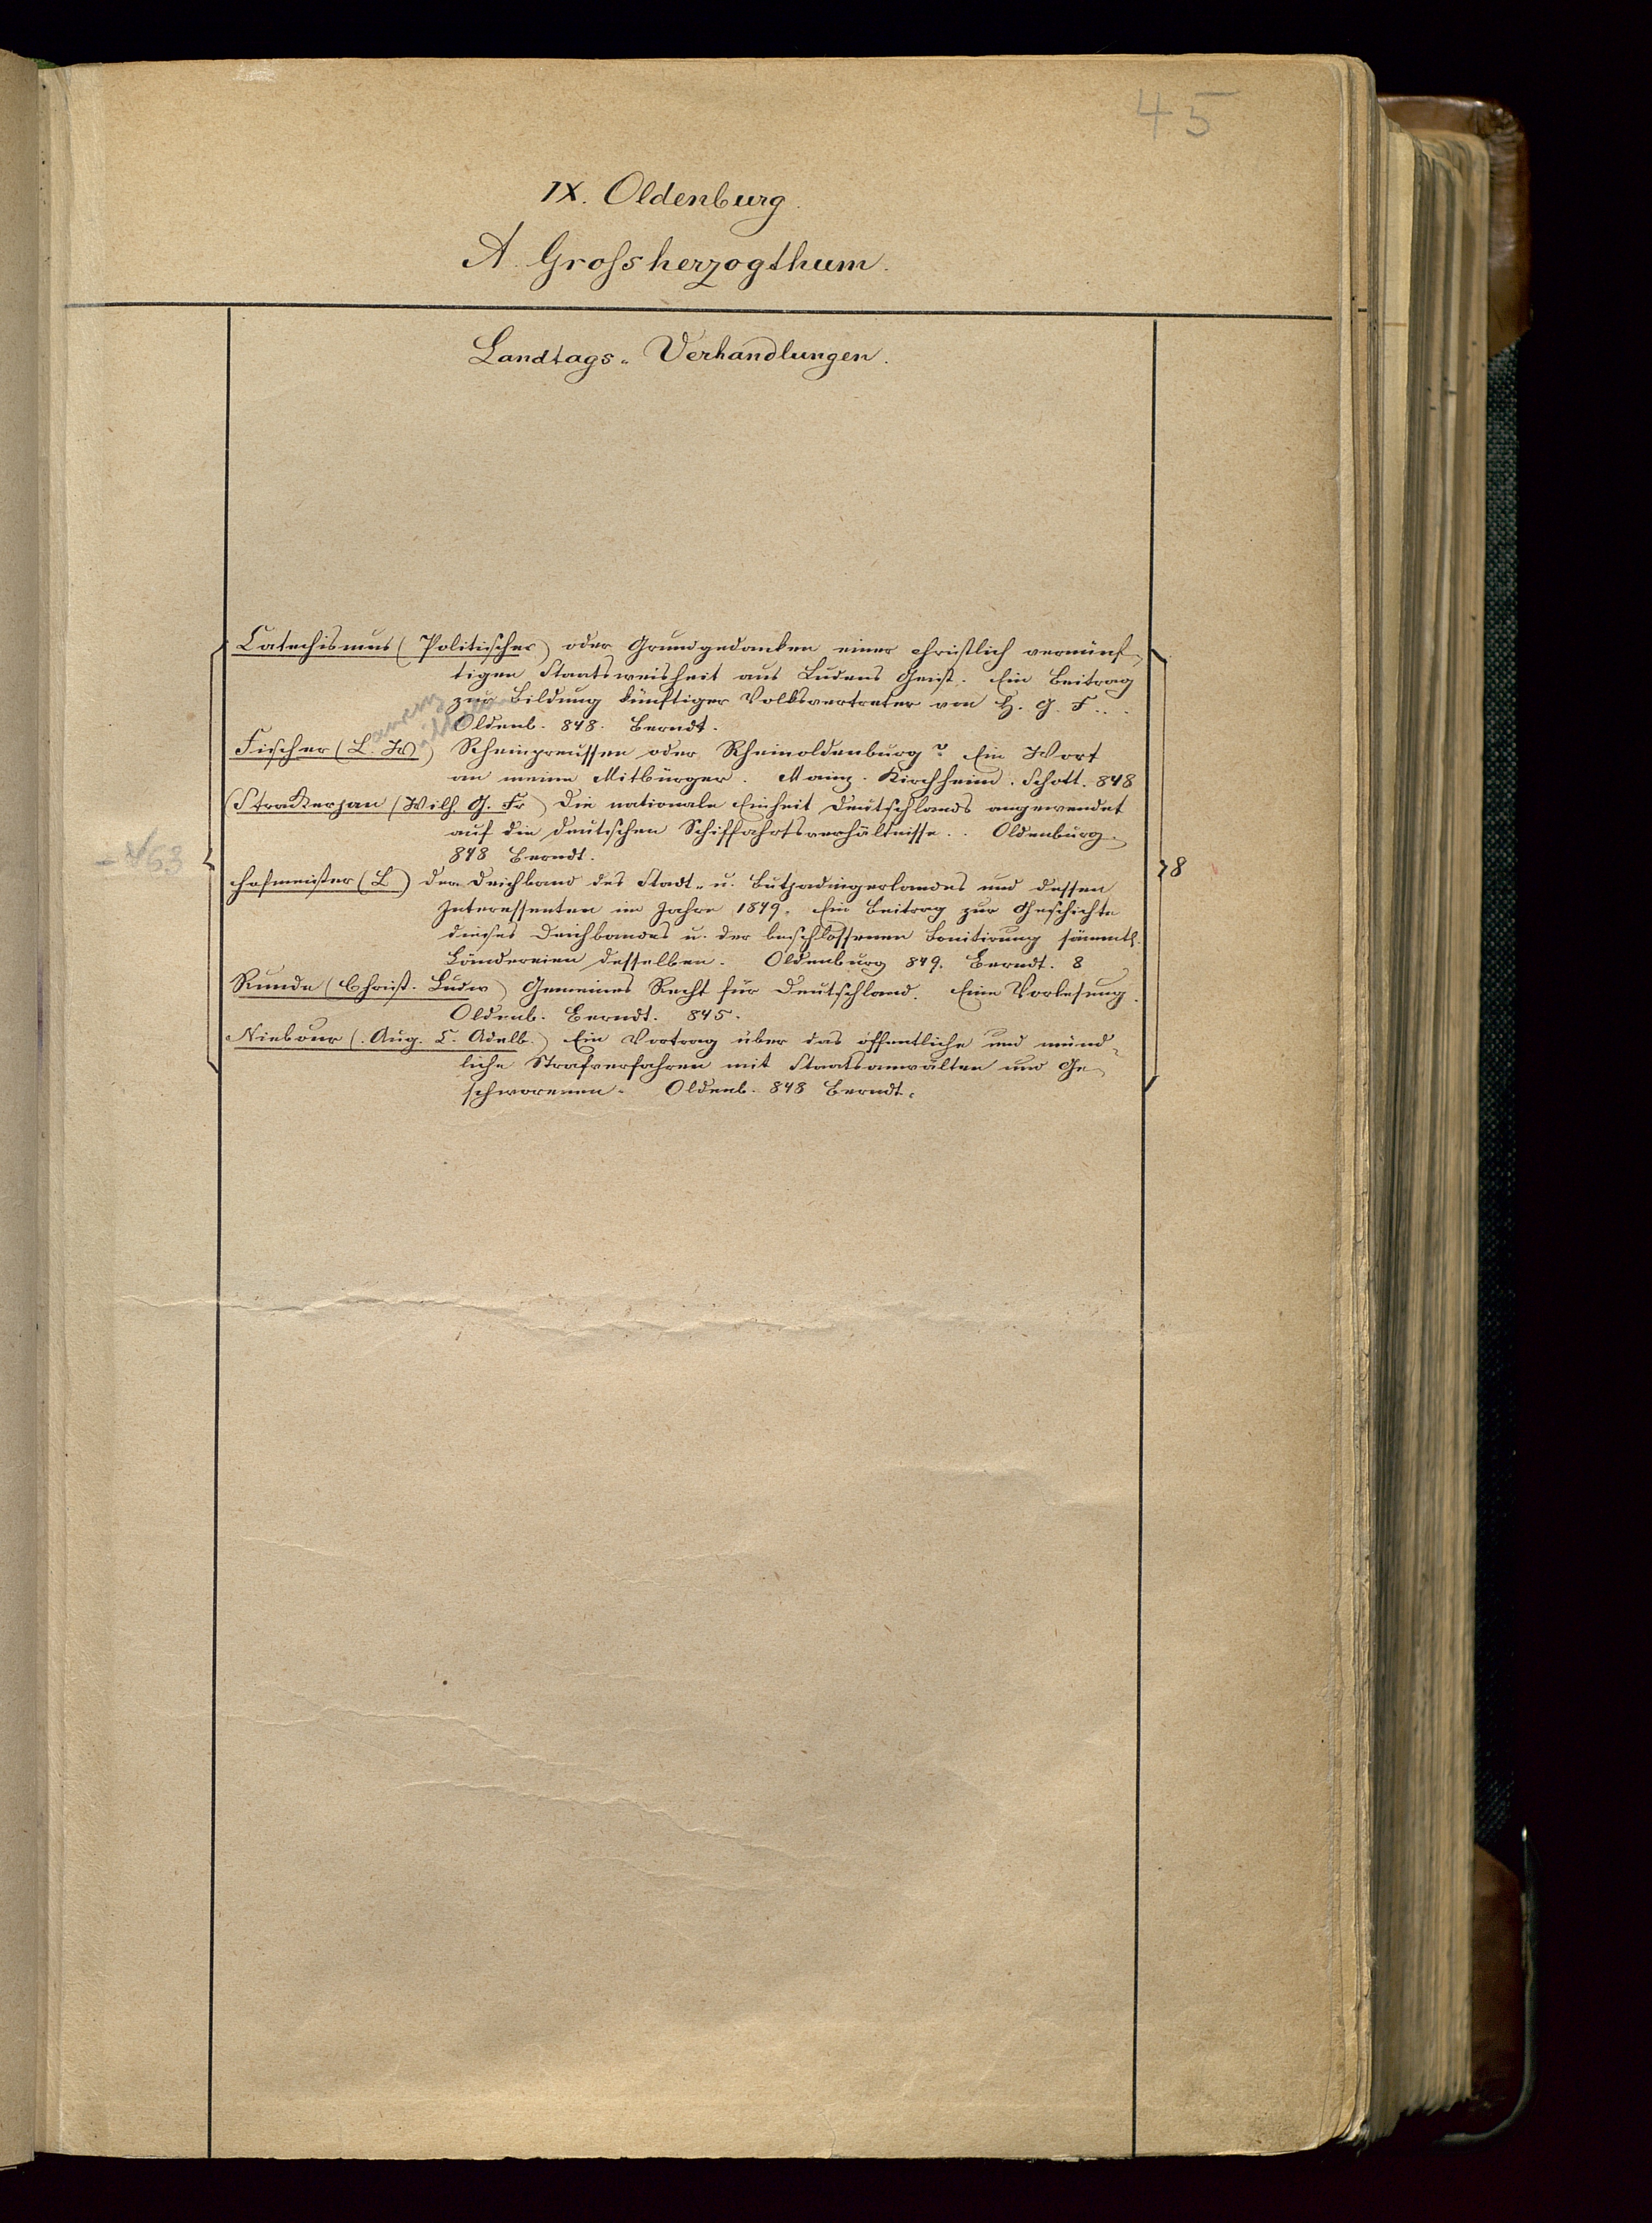 45
IX. Oldenburg.
A. Grossherzogthum.
Landtags-Verhandlungen.
Catechismus (Politischer) oder Grundgedanken einer christlich vernünf-
tigen Staatsweisheit aus Ludens Geist. Ein Beitrag
zur Bildung künftiger Volksvertreter von H. G. F...
Oldenb. 848. Berndt.
Fischer (L. W) Rheinpreussen oder Rheinoldenburg? Ein Wort
an meine Mitbürger. Mainz. Kirchheim. Schott. 848
(Strakerjan (Wilh. G. Fr) Die nationale Einheit Deutschlands angewendet
auf die deutschen Schiffahrtsverhältnisse.. Oldenburg.
848 Berndt.
-853
8
Hofmeister (L) der Deichband des Stadt- u. Butjadingerlandes und dessen
Interessenten im Jahre 1849. Ein Beitrag zur Geschichte
dieses Deichbandes u. der beschlossenen Bonitirung sämmtl.
Ländereien desselben. Oldenburg 849. Berndt. 8
Runde (Christ. Ludw) Gemeines Recht für Deutschland. Eine Vorlesung.
Oldenb. Berndt. 845.
Niebour (Aug. C. Adelb.) Ein Vortrag über das öffentliche und münd-
liche Strafverfahren mit Staatsanwälten und Ge-
schworenen. Oldenb. 848 Berndt.